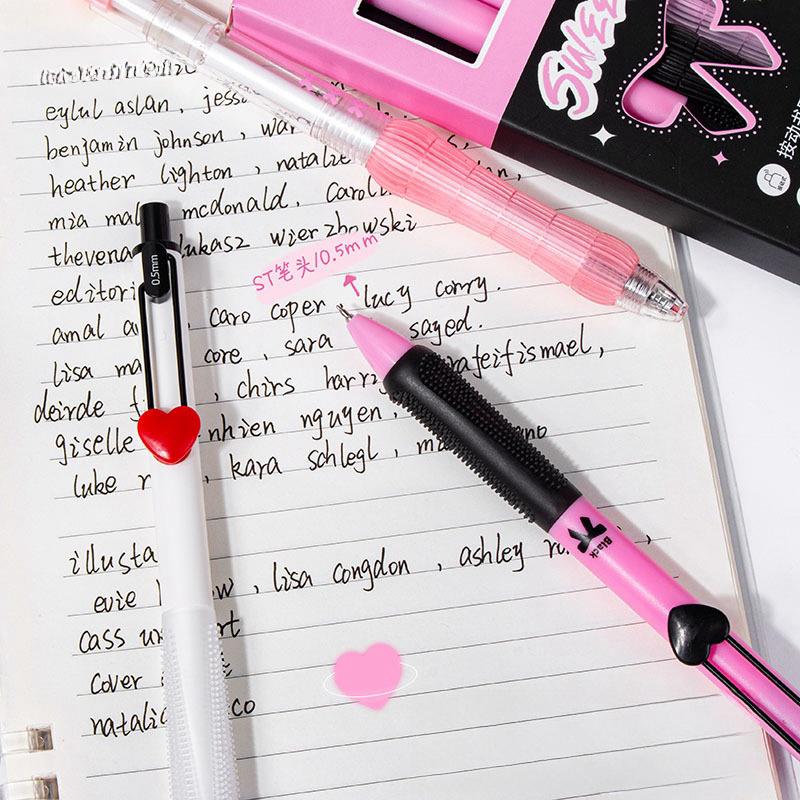 SWEE
按动
eylul aslan, jess
benjamin johnson, war
heather lighton, natalie
mia mal mcdonald. Caroli
thevena lukasz wierzbowski
editori
0.5mm
ST笔头/0.5mm
amal a , caro coper lucy corry.
lisa ma core, sara sayed.
deirde f , chirs harri rateifismael,
giselle nhien nguyen,
luke r , kara schlegl, ma ano
Black
illusta
evie w, lisa congdon, ashley ro
cass un rt
Cover
natalic co